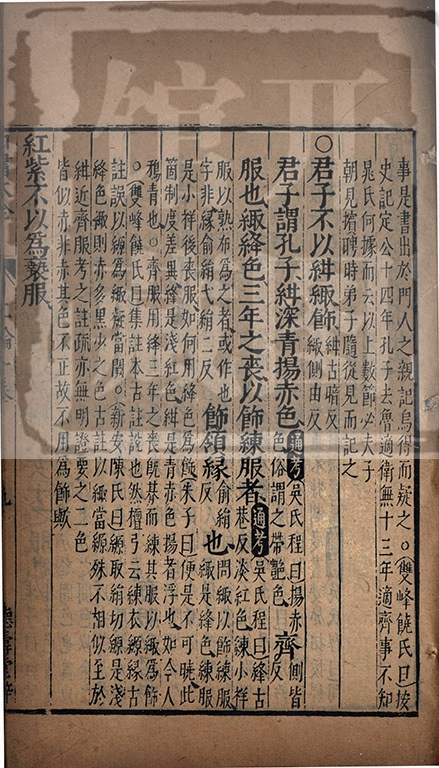 事是書出於門人之親記烏得而疑之○雙峰饒氏曰按
史記定公十四年孔子去魯適衛無十三年適齊事不知
晁氏何據而云以上數節必夫子
朝見擯聘時弟子隨從見而記之
○君子不以紺緅飾紺古暗反
緅側由反
君子謂孔子紺深青揚赤色通考吳氏程曰揚赤側皆
色俗謂之帶艷色反齊
服也緅絳色三年之喪以飾練服者通考吳氏程曰絳古
巷反淡紅色練小祥
服以熟布為之者或作也
字非緣俞絹弋絹二反飾領緣俞絹
反也問緅以飾練服
緅是絳色練服
是小祥後喪服如何用絳色為飾朱子曰便是不可曉此
箇制度差異絳是淺紅色紺是青赤色揚者浮也如今人
鴉青也○齊服用絳三年之喪既朞而練其服以緅為飾
○雙峰饒氏曰集註本古註說也然檀弓云練衣縓緣古
註誤以縓為緅疑當闕○新安陳氏曰縓取絹切縓是淺
絳色緅則赤多黑少之色古註以緅當縓殊不相似至於
紺近齊服考之註疏亦無明證要之二色
皆似赤非赤其色不正故不用為飾歟
紅紫不以為褻服